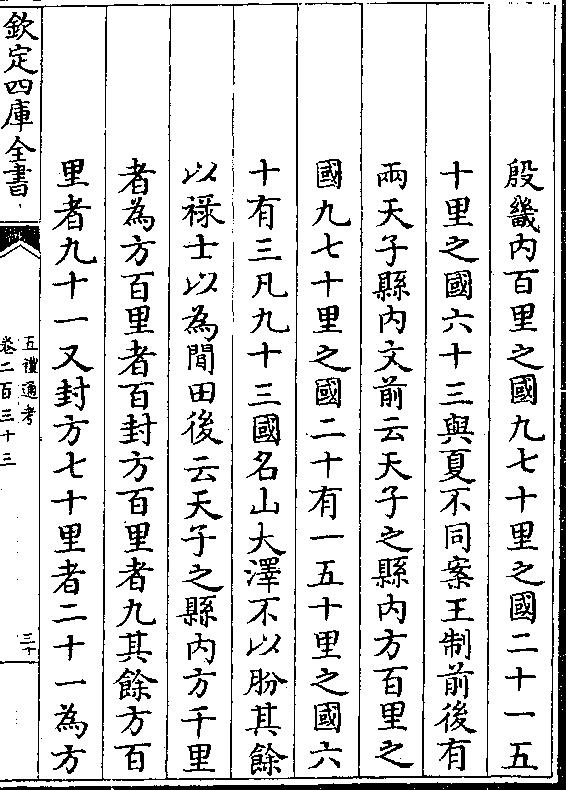 殷畿内百里之國九七十里之國二十一五
十里之國六十三與夏不同案王制前後有
兩天子縣内文前云天子之縣内方百里之
國九七十里之國二十有一五十里之國六
十有三凡九十三國名山大澤不以朌其餘
以祿士以為間田後云天子之縣内方千里
者為方百里者百封方百里者九其餘方百
里者九十一又封方七十里者二十一為方
欽定四庫全書
五禮通考
卷二百三十三
三十